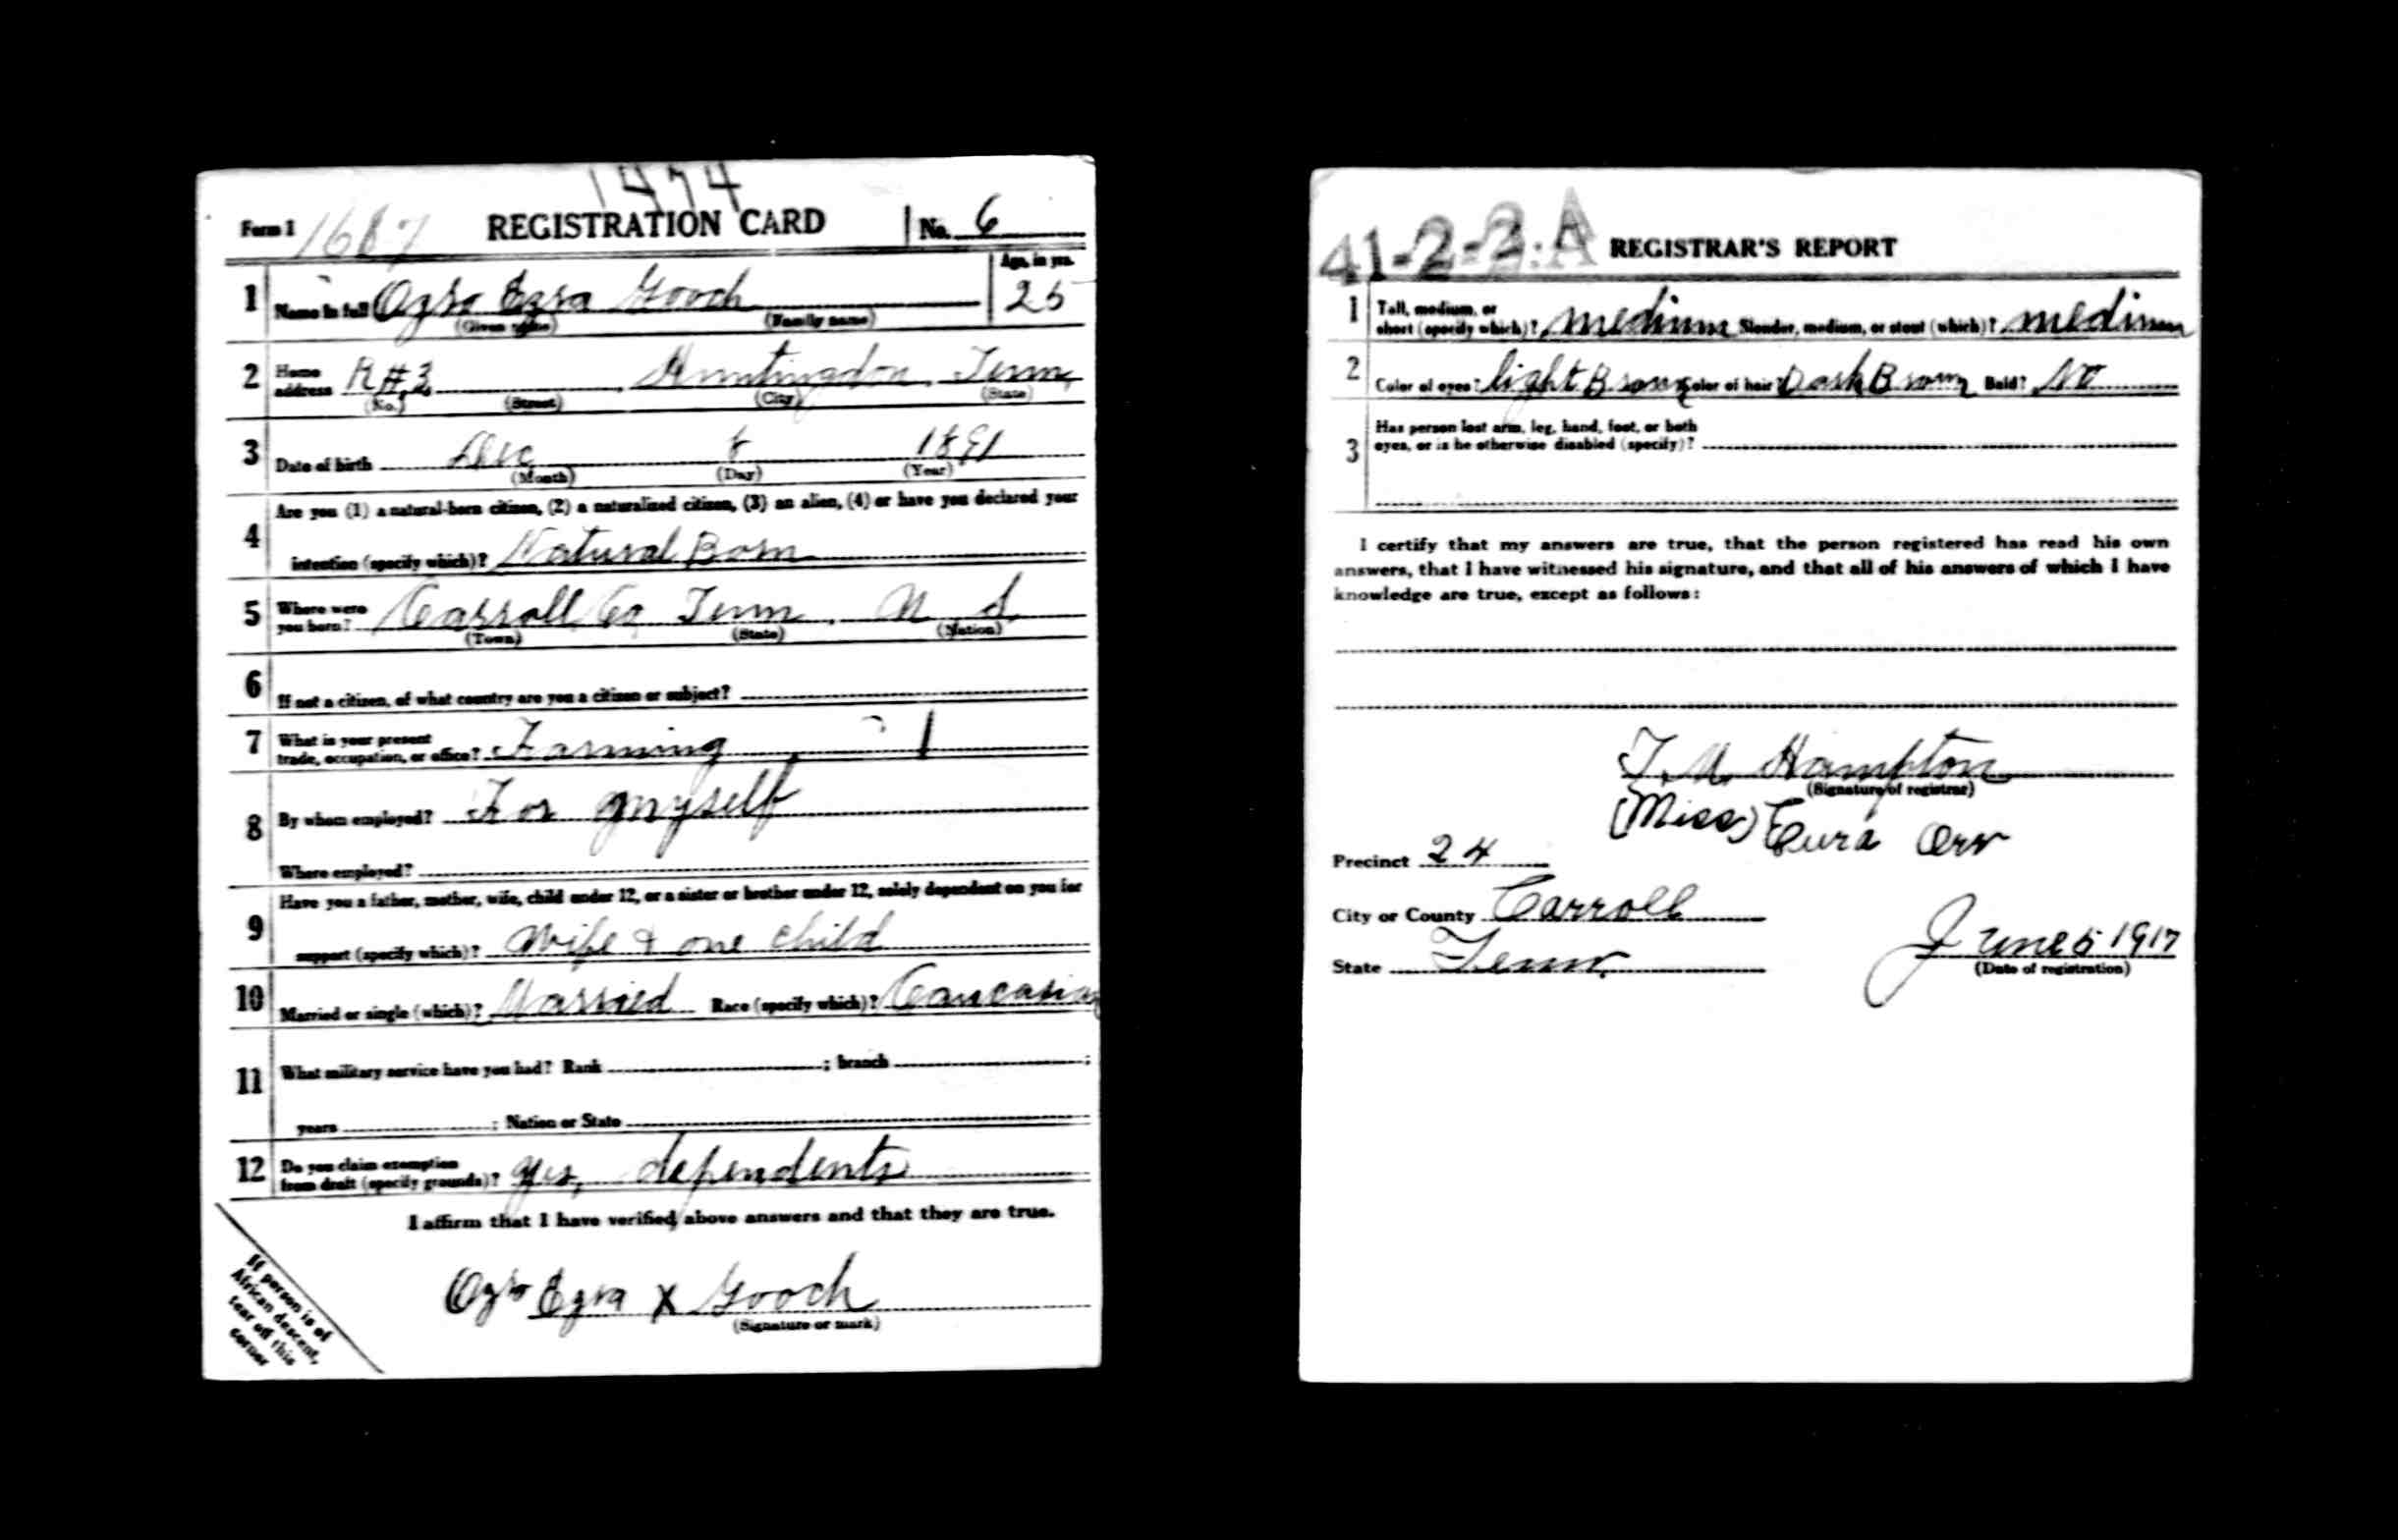 1474
Form 1 1687 REGISTRATION CARD No. 6
1 Name in full Ozro Ezra Gooch Age, in yrs. 25
(Given name) (Family name)
2 Home address R#3 Huntingdon, Tenn,
(No.) (Street) (City) (State)
3 Date of birth Dec 8 1891
(Month) (Day) (Year)
4 Are you (1) a natural-born citizen, (2) a naturalized citizen, (3) an alien, (4) or have you declared your
intention (specify which)? Natural Born
5 Where were you born? Carroll Co Tenn. U S
(Town) (State) (Nation)
6 If not a citizen, of what country are you a citizen or subject?
7 What is your present trade, occupation, or office? Farming 1
8 By whom employed? For myself
Where employed?
9 Have you a father, mother, wife, child under 12, or a sister or brother under 12, solely dependent on you for
support (specify which)? Wife & one child
10 Married or single (which)? Married Race (specify which)? Caucasian
11 What military service have you had? Rank ; branch ;
years ; Nation or State
12 Do you claim exemption from draft (specify grounds)? yes, dependents
I affirm that I have verified above answers and that they are true.
Ozro Ezra X Gooch
(Signature or mark)
If person is of
African descent,
tear off this
corner
41-2-2-A REGISTRAR'S REPORT
1 Tall, medium, or
short (specify which)? medium Slender, medium, or stout (which)? medium
2 Color of eyes? light Brown Color of hair? Dark Brown Bald? No
3 Has person lost arm, leg, hand, foot, or both
eyes, or is he otherwise disabled (specify)?
I certify that my answers are true, that the person registered has read his own
answers, that I have witnessed his signature, and that all of his answers of which I have
knowledge are true, except as follows:
T. M. Hampton
(Signature of registrar)
(Miss) Eura Orr
Precinct 24
City or County Carroll
State Tenn.
June 5 1917
(Date of registration)